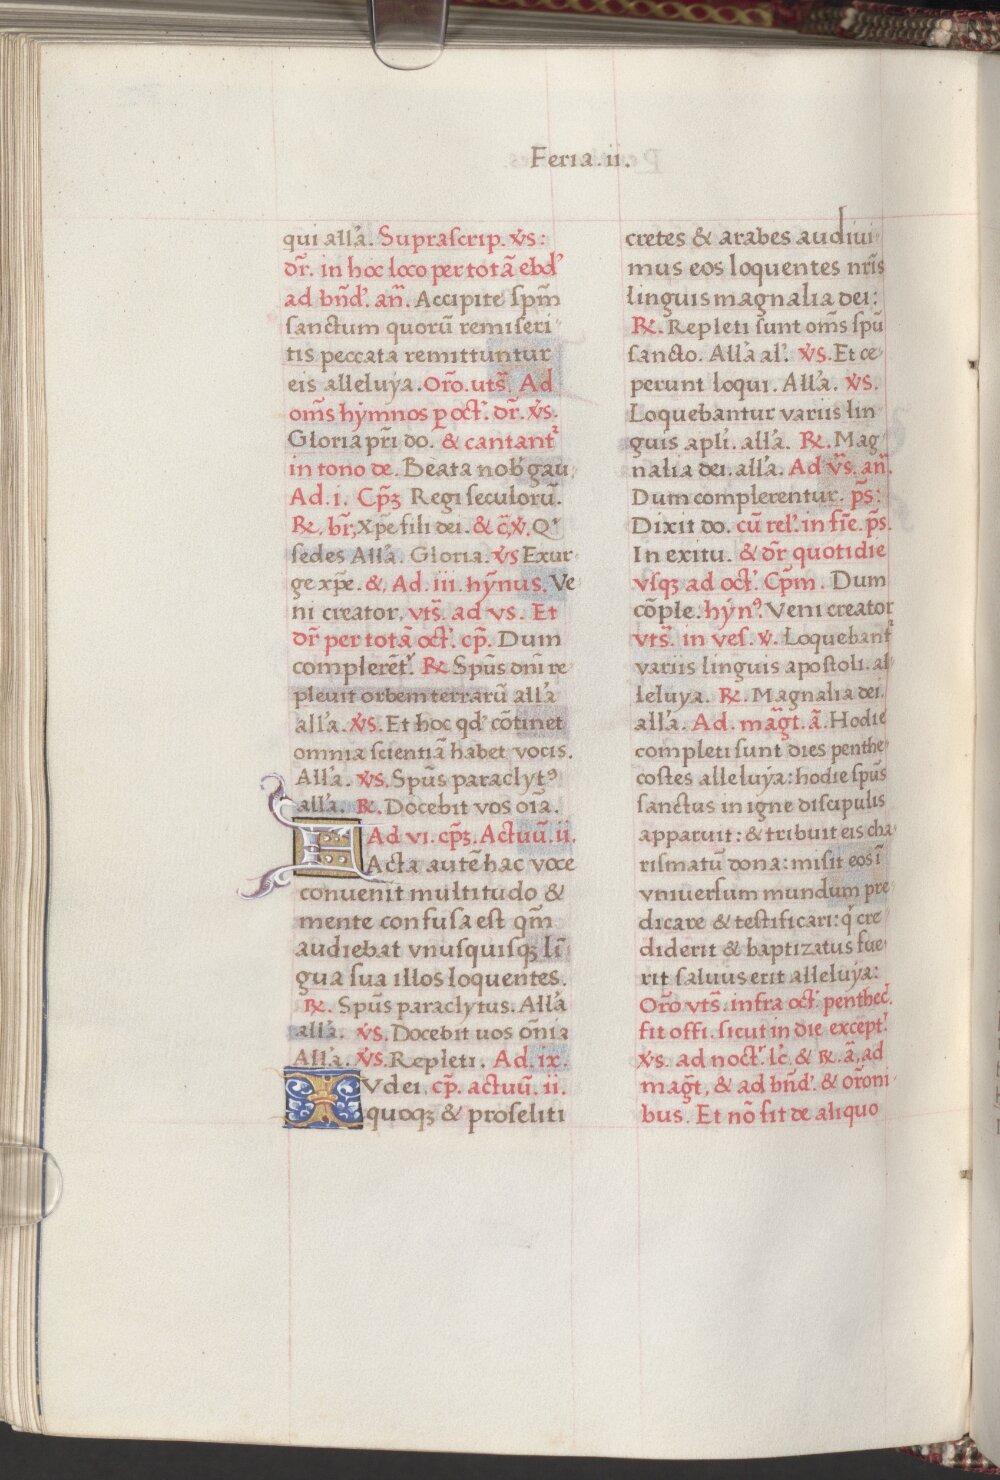 Feria.ii.
qui all'a. Suprascrip. v̇s:
dr̄. in hoc loco per totā ebd'
ad bn̄d'. an̄. Accipite sp̄m
sanctum quorū remiseri
tis peccata remittuntur
eis alleluẏa. Or̄o. uts̄. Ad
om̄s hẏmnos p octꝰ. dr̄. v̇s.
Gloria pr̄i do. & cantant᷑
in tono de. Beata nob' gau
Ad. i. Cp̄ꝫ Regi seculorū.
℞. br̄, xp̄e fili dei. & c̄, v̇. Qꝰ
sedes All'a. Gloria. v̇s Exur
ge xp̄e. &. Ad. iii. hẏ̄nus. Ve
ni creator, vts̄. ad vs. Et
dr̄ per totā oct'. cp̄. Dum
complerēt᷑. ℞ Sp̄us dn̄i re
pleuit orbem terrarū all'a
all'a. v̇s. Et hoc qd' cōtinet
omnia scientiā habet vocis.
All'a. v̇s. Sp̄us paraclytꝰ
all'a. ℞. Docebit vos oīa.
Ad vi. cp̄ꝫ. Actuū. ii.
FActa autē hac voce
convenīt multitudo &
mente confusa est qm̄
audiebat vnusquisqꝫ lī
gua sua illos loquentes.
℞. Sp̄us paraclytus. All'a
all'a. v̇s. Docebit uos on̄ia
All'a. v̇s. Repleti. Ad. ix.
IVdei. cp̄. actuū. ii.
quoqꝫ & proseliti
cretes & arabes audivi
mus eos loquentes nr̄is
linguis magnalia dei:
℞. Repleti sunt om̄s spū
sancto. All'a al'. v̇s. Et ce
perunt loqui. All'a. v̇s.
Loquebantur variis lin
guis apl'i. all'a. ℞. Mag
nalia dei. all'a. Ad v̇s. an̄.
Dum complerentur. ps̄:
Dixit do. cū rel'. in fīe. ps̄.
In exitu. & dr̄ quotidie
vsqꝫ ad oct'. Cp̄m. Dum
cōple. hẏnꝰ. Veni creator
vts̄. in ves. v̇. Loquebant᷑
variis linguis apostoli. al
leluya. ℞. Magnalia dei.
all'a. Ad. māgt. ā. Hodie
completi sunt dies penthe
costes alleluẏa: hodie sp̄us
sanctus in igne discipulis
apparuit: & tribuit eis cha
rismatū dona: misit eos ī
vniuersum mundum pre
dicare & testificari: q' cre
diderit & baptizatus fue
rit saluus erit alleluẏa:
Or̄o vts̄. infra oct'. penthec̄.
fit offi. sicut in die except'
v̇s. ad noct'. lc̄. & ℞. ā, ad
māgt, & ad bn̄d'. & or̄oni
bus. Et nō fit de aliquo